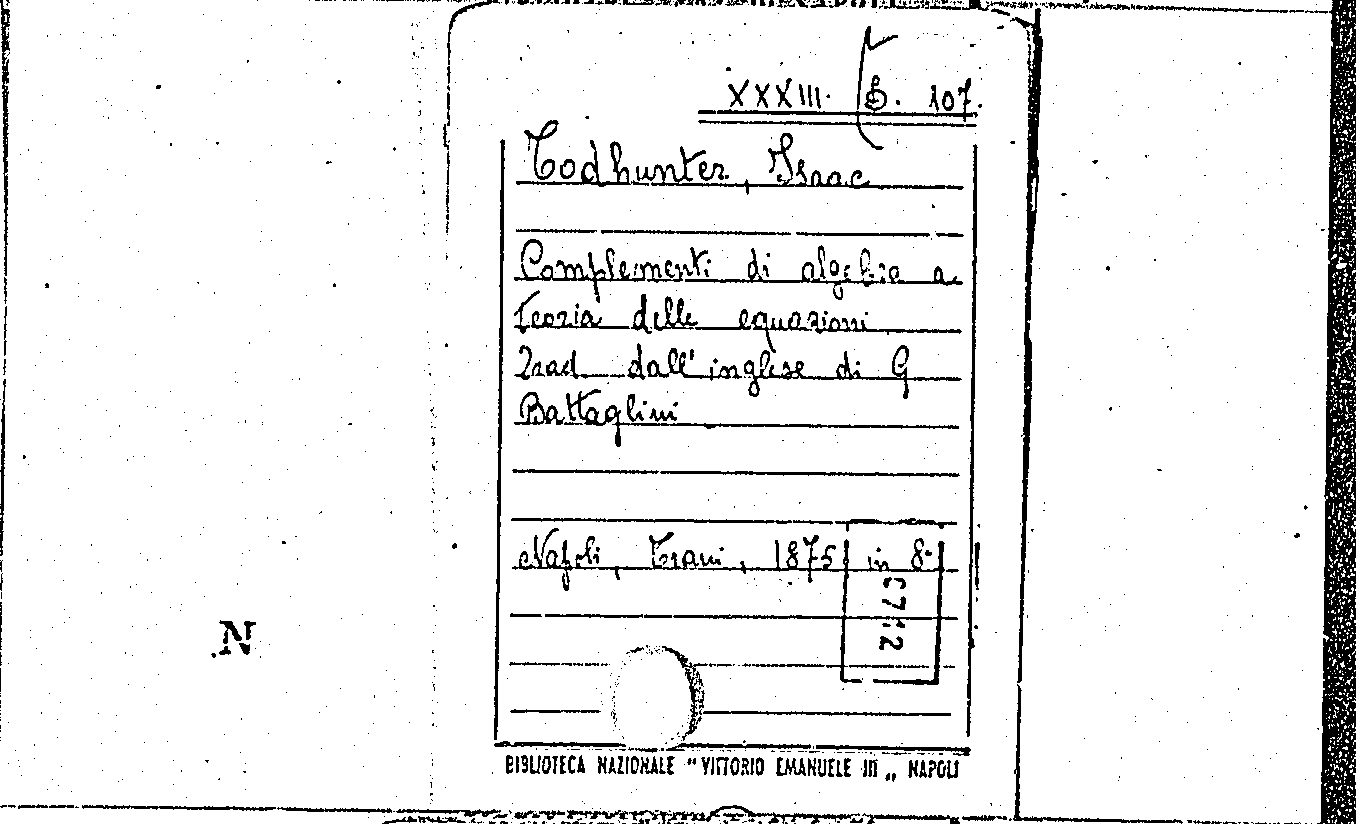 XXXIII. B. 107.
Todhunter, Isaac
Complementi di algebra a
Teoria delle equazioni
Trad dall'inglese di G
Battaglini
Napoli, Trani, 1875 in 8º
N
BIBLIOTECA NAZIONALE "VITTORIO EMANUELE III" NAPOLI